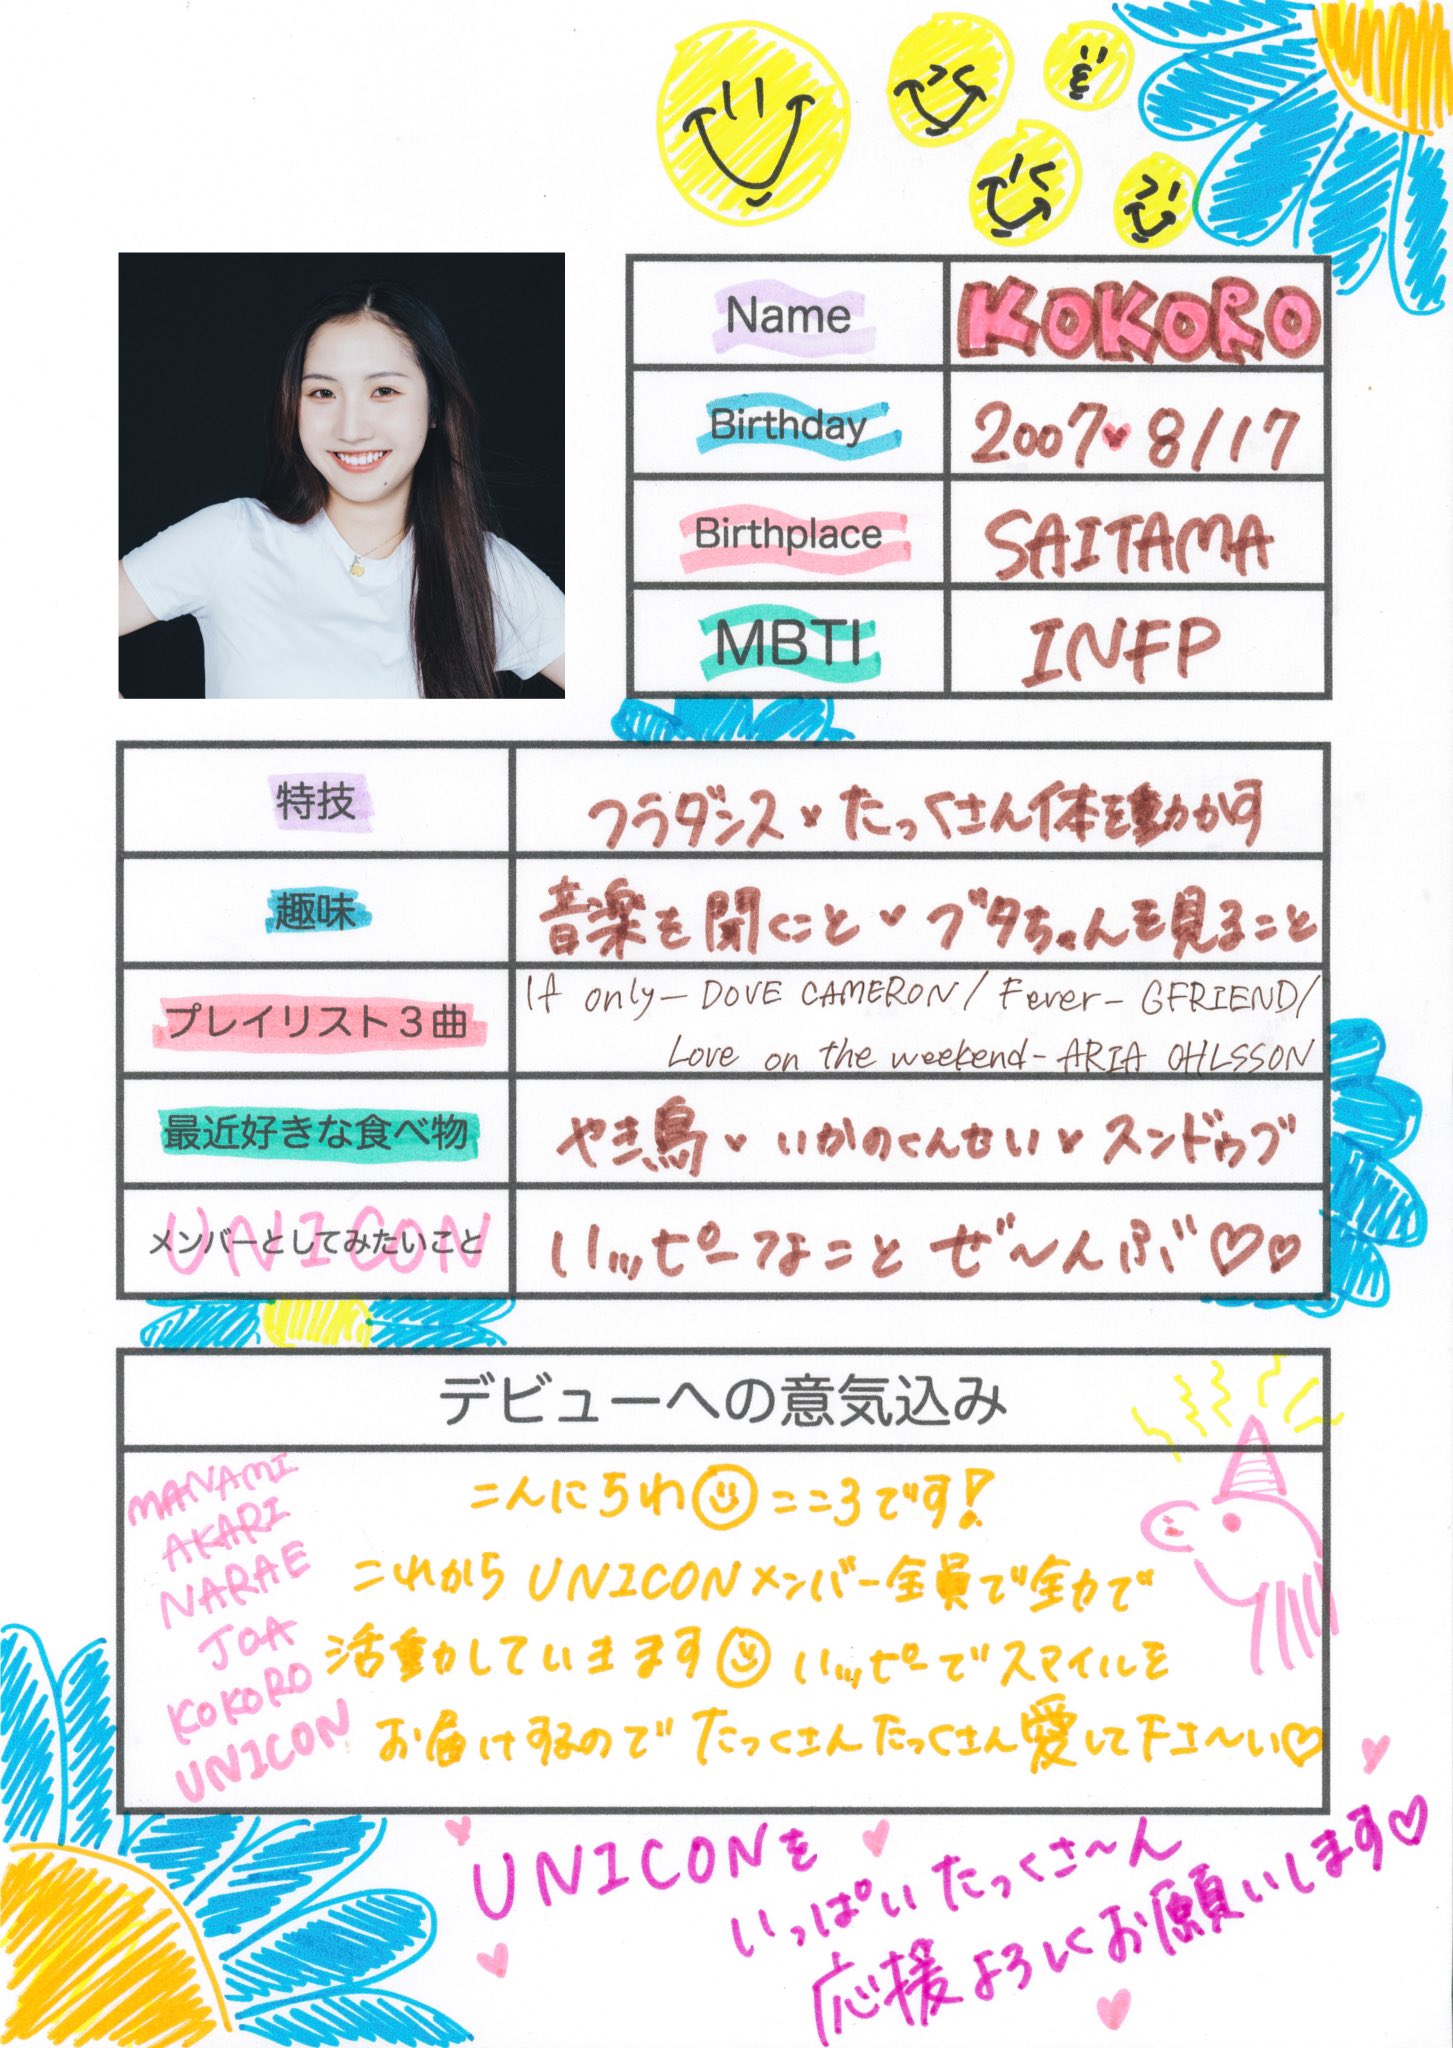 Name
KOKORO
Birthday
2007♥8/17
Birthplace
SAITAMA
MBTI
INFP
特技
フラダンス♥たっくさん体を動かす
趣味
音楽を聞くこと♥ブタちゃんを見ること
プレイリスト3曲
If only – DOVE CAMERON / Fever – GFRIEND/
Love on the weekend – ARIA OHLSSON
最近好きな食べ物
やき鳥♥いかのくんせい♥スンドゥブ
UNICON
メンバーとしてみたいこと
ハッピーなこと ぜ〜んぶ♡♡
デビューへの意気込み
MANAMI
AKARI
NARAE
JOA
KOKORO
UNICON
こんにちわ☺こころです!
これから UNICONメンバー全員で全力で
活動していきます☺ ハッピーでスマイルを
お届けするので たっくさんたっくさん愛して下さ〜い♡
UNICONを
いっぱいたっくさ〜ん
応援よろしくお願いします♡